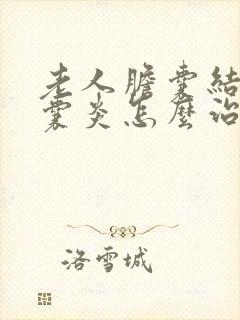 老人膽囊結
囊炎怎麼治
洛雪城